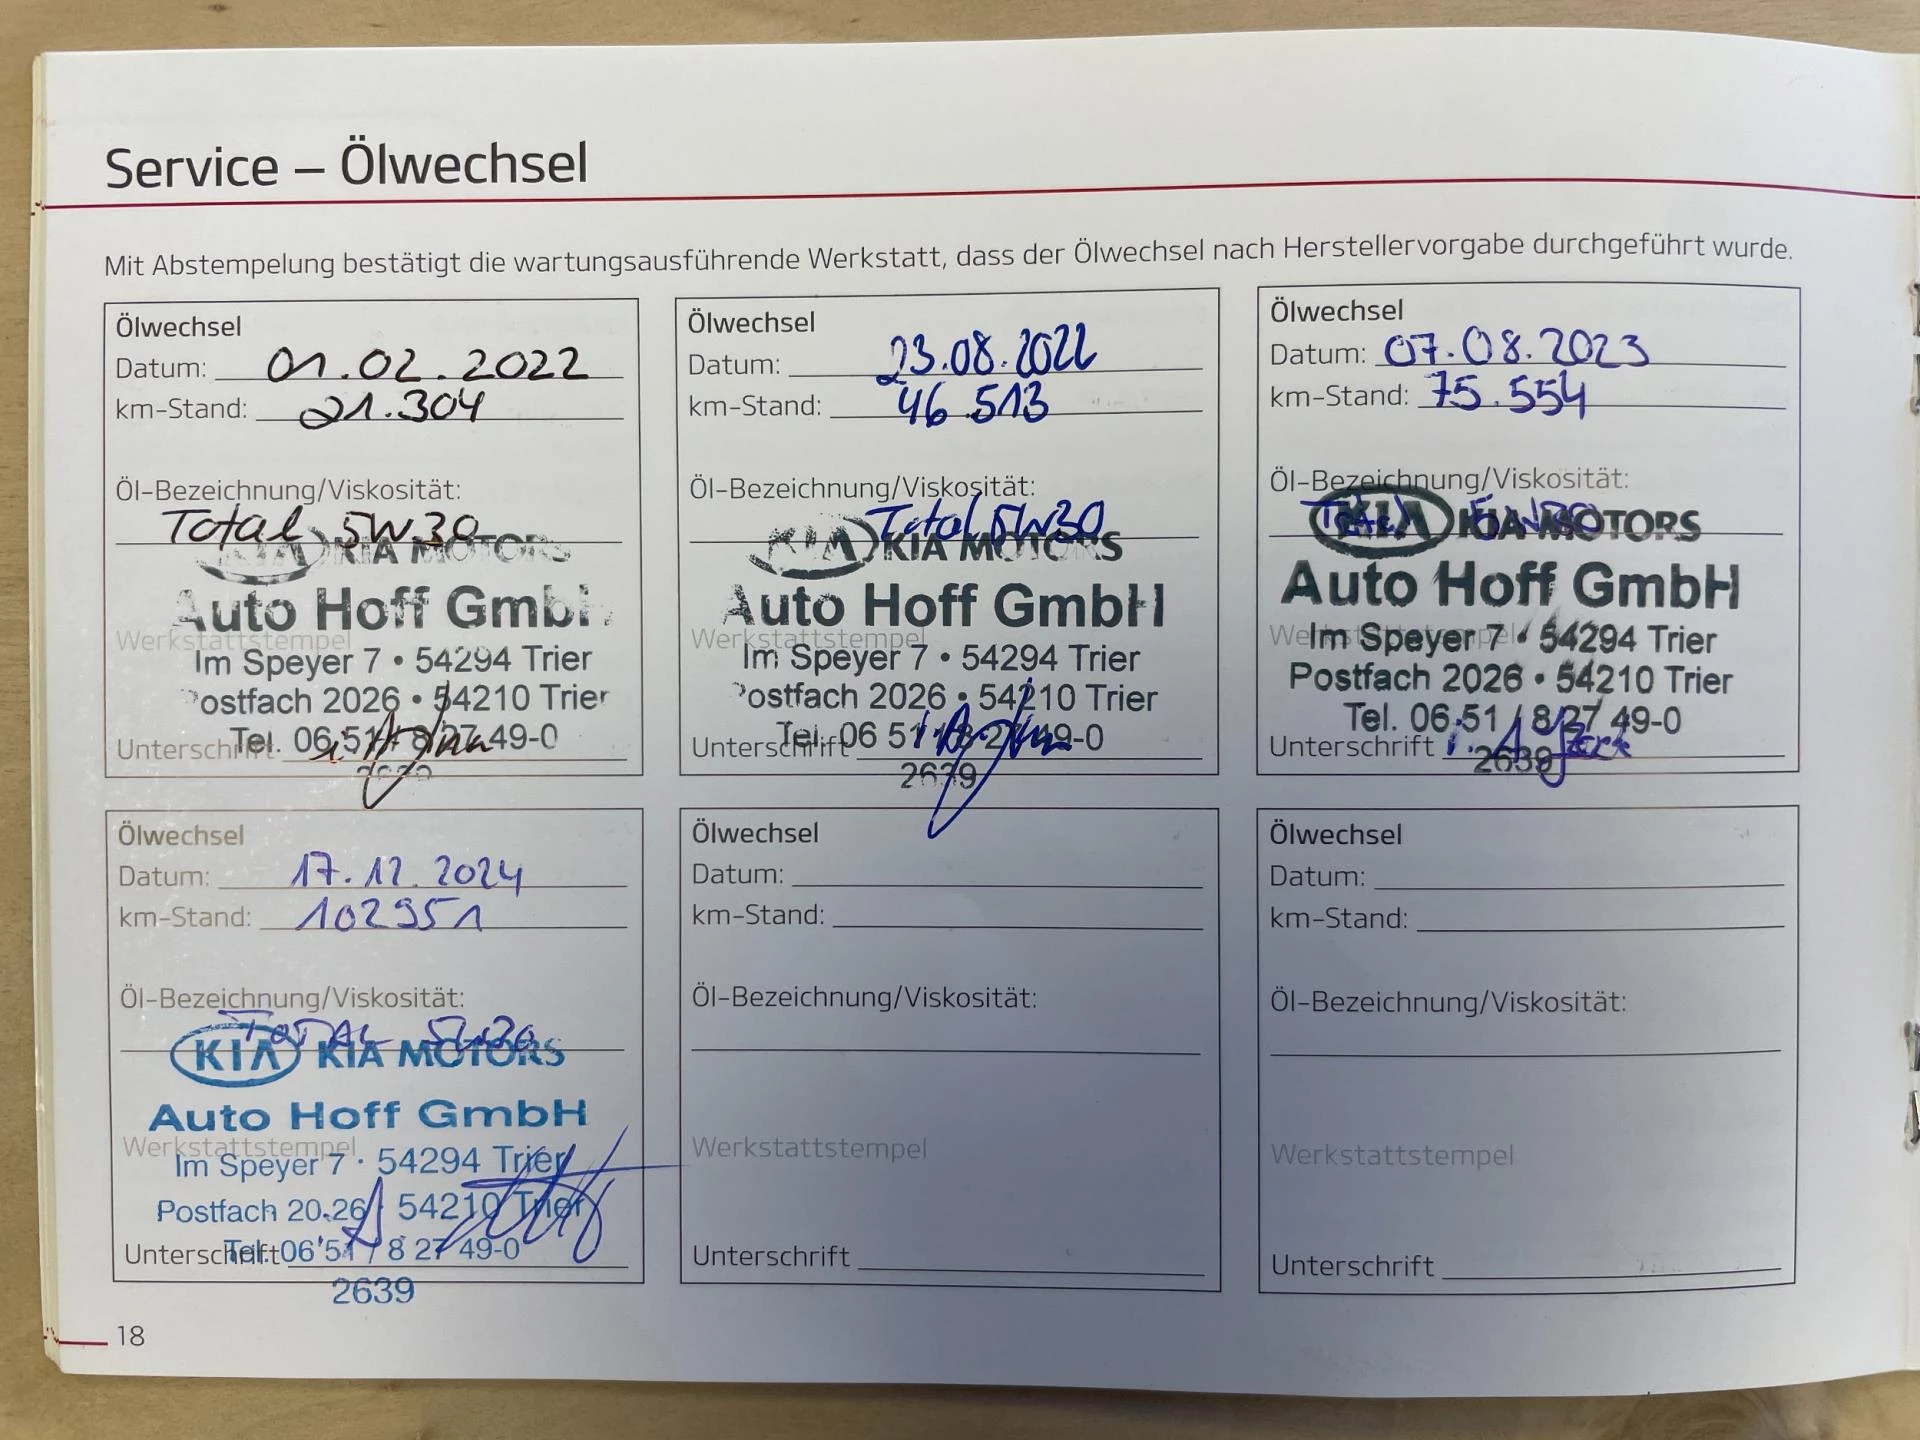 Service – Ölwechsel
Mit Abstempelung bestätigt die wartungsausführende Werkstatt, dass der Ölwechsel nach Herstellervorgabe durchgeführt wurde.
Ölwechsel
Datum: 01.02.2022
km-Stand: 21.304
Öl-Bezeichnung/Viskosität:
Total 5W30
KIA KIA MOTORS
Auto Hoff GmbH
Werkstattstempel
Im Speyer 7 • 54294 Trier
Postfach 2026 • 54210 Trier
Tel. 06 51 / 8 27 49-0
Unterschrift
2639
Ölwechsel
Datum: 23.08.2022
km-Stand: 46.513
Öl-Bezeichnung/Viskosität:
Total 5W30
KIA KIA MOTORS
Auto Hoff GmbH
Werkstattstempel
Im Speyer 7 • 54294 Trier
Postfach 2026 • 54210 Trier
Tel. 06 51 / 8 27 49-0
Unterschrift
2639
Ölwechsel
Datum: 07.08.2023
km-Stand: 75.554
Öl-Bezeichnung/Viskosität:
Total 5W30
KIA KIA MOTORS
Auto Hoff GmbH
Werkstattstempel
Im Speyer 7 • 54294 Trier
Postfach 2026 • 54210 Trier
Tel. 06 51 / 8 27 49-0
Unterschrift
2639
Ölwechsel
Datum: 17.12.2024
km-Stand: 102951
Öl-Bezeichnung/Viskosität:
TOTAL 5W30
KIA KIA MOTORS
Auto Hoff GmbH
Werkstattstempel
Im Speyer 7 · 54294 Trier
Postfach 20 26 · 54210 Trier
Tel. 06 51 / 8 27 49-0
Unterschrift
2639
Ölwechsel
Datum:
km-Stand:
Öl-Bezeichnung/Viskosität:
Werkstattstempel
Unterschrift
Ölwechsel
Datum:
km-Stand:
Öl-Bezeichnung/Viskosität:
Werkstattstempel
Unterschrift
18